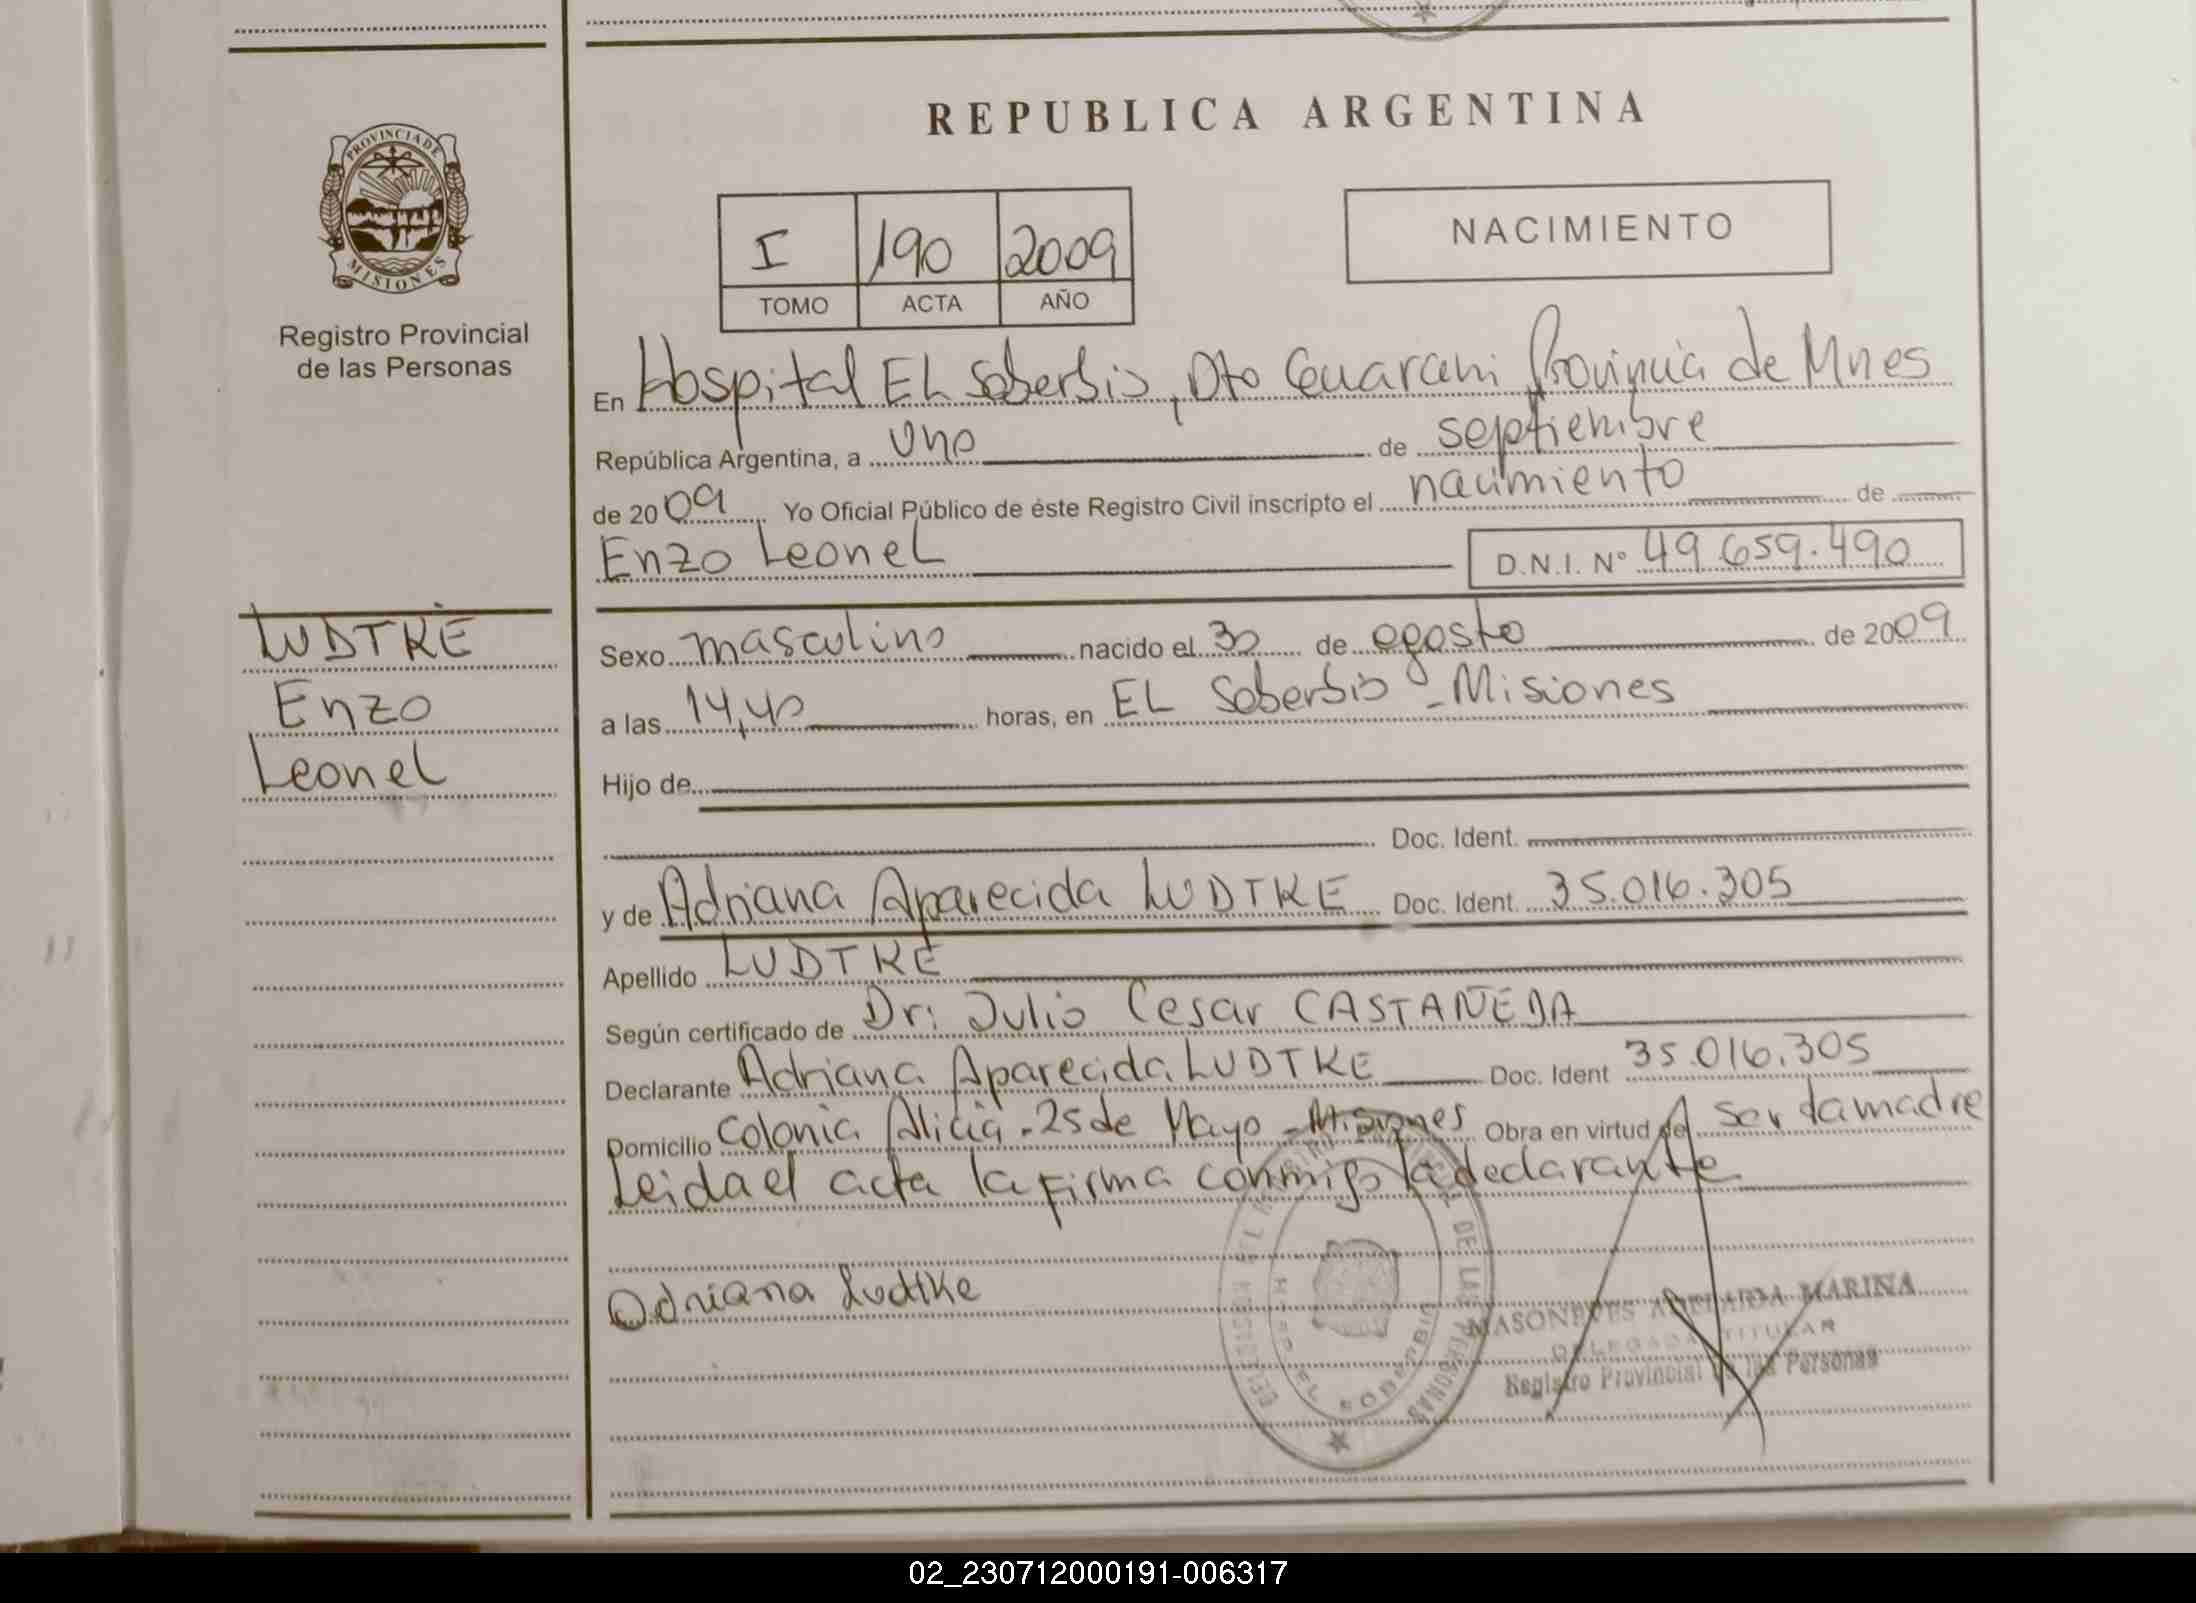 REPUBLICA ARGENTINA
PROVINCIA DE
MISIONES
Registro Provincial
de las Personas
I 190 2009
TOMO ACTA AÑO
NACIMIENTO
En Hospital EL Soberbio, Dto Guarani Provincia de Mnes
República Argentina, a uno de septiembre
de 2009 Yo Oficial Público de éste Registro Civil inscripto el nacimiento de
Enzo Leonel
D.N.I. Nº 49.659.490
LUDTKE
Enzo
Leonel
Sexo masculino nacido el 30 de agosto de 2009
a las 14,40 horas, en EL Soberbio - Misiones
Hijo de
Doc. Ident.
y de Adriana Aparecida LUDTKE Doc. Ident. 35.016.305
Apellido LUDTKE
Según certificado de Dr: Julio Cesar CASTAÑEDA
Declarante Adriana Aparecida LUDTKE Doc. Ident 35.016.305
Domicilio Colonia Alicia - 25 de Mayo - Misiones Obra en virtud de ser la madre
Leida el acta la firma conmigo la declarante
Adriana Ludtke
ADELAIDA MARINA
DELEGADA TITULAR
Registro Provincial de las Personas
DE LAS PERSONAS
EL SOBERBIO
02_230712000191-006317